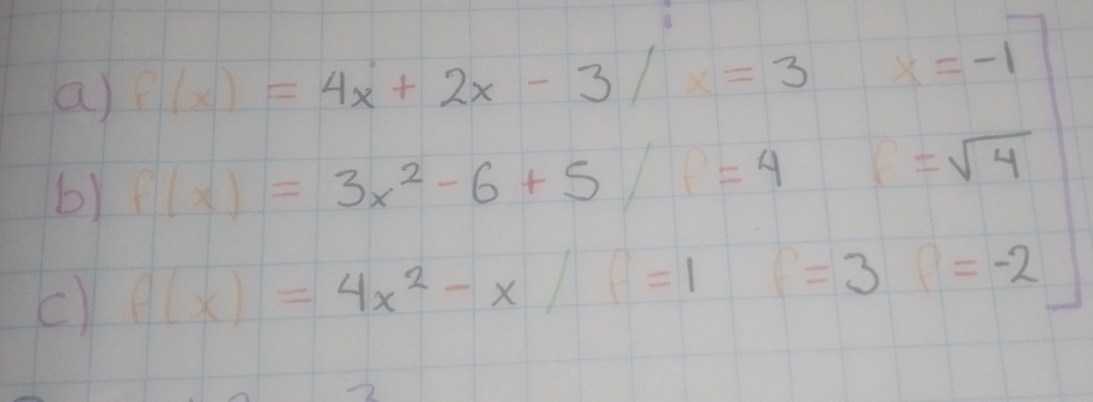 a) f(x) = 4x + 2x - 3 / x = 3 x = -1
b) f(x) = 3x² - 6 + 5 / f = 4 f = √4
c) f(x) = 4x² - x / f = 1 f = 3 f = -2